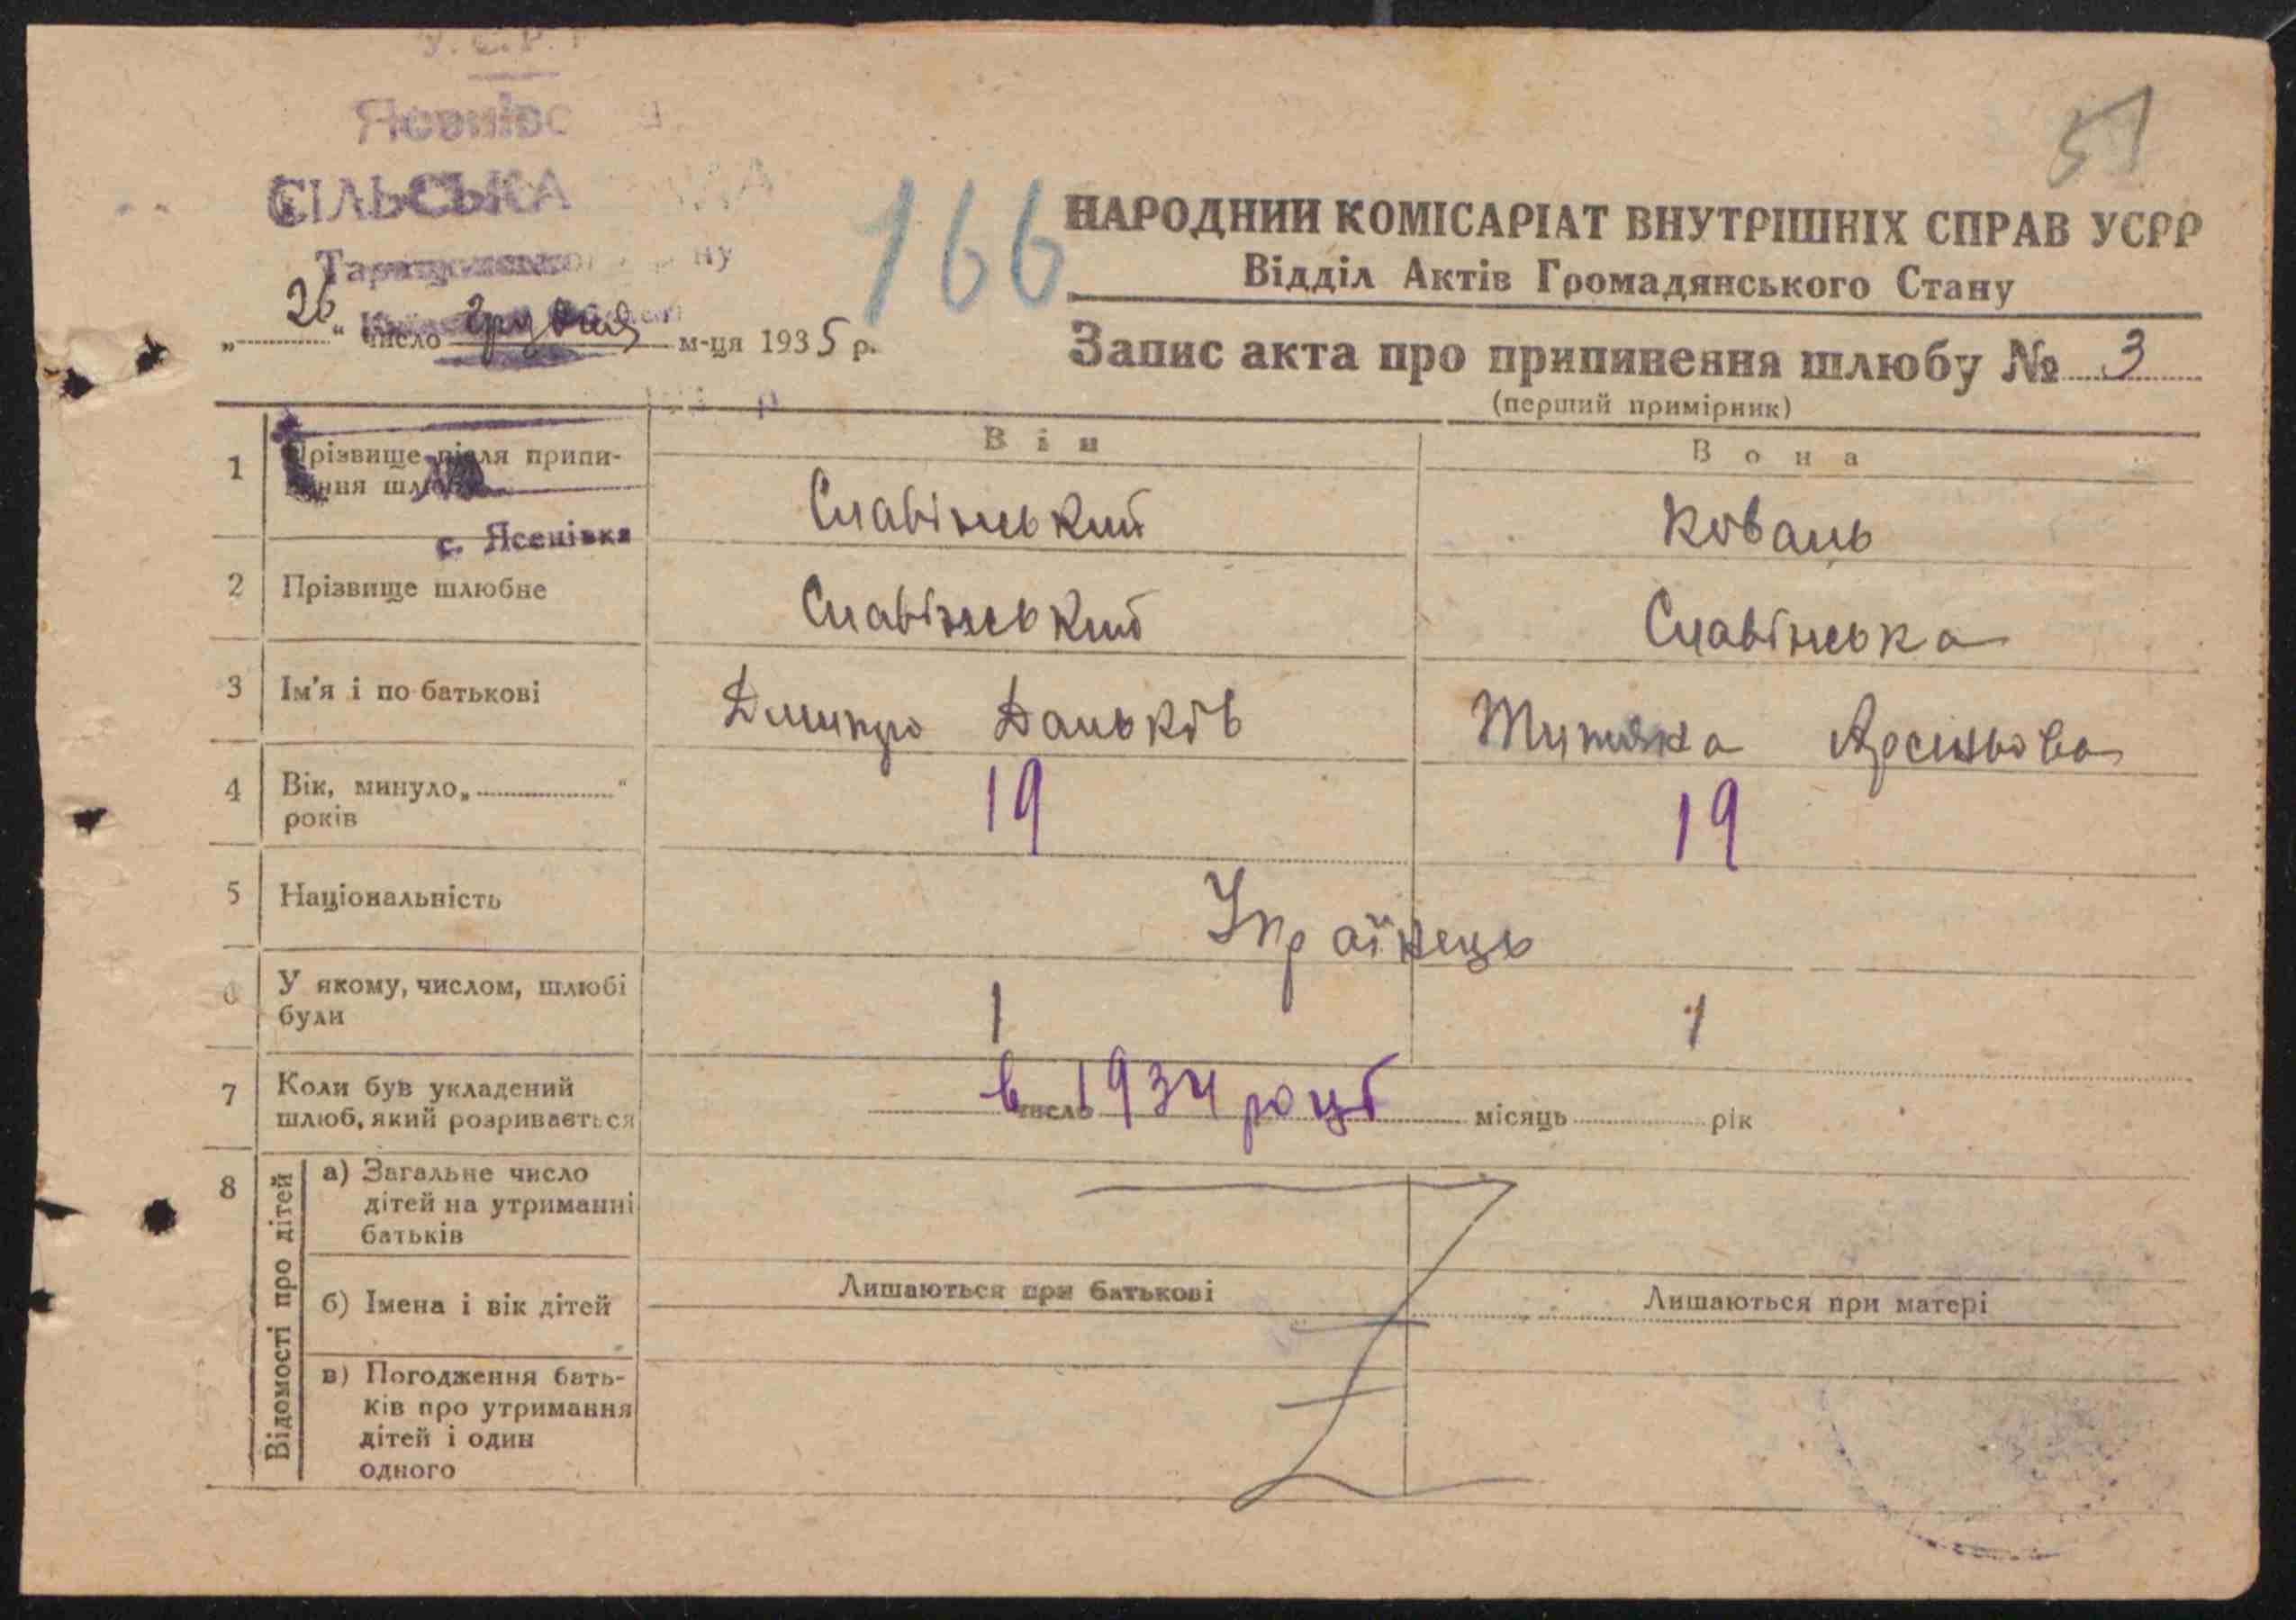 У.С.Р.Р
51
СІЛЬСЬКА
166
НАРОДНИЙ КОМІСАРІАТ ВНУТРІШНІХ СПРАВ УСРР
Відділ Актів Громадянського Стану
„ 26 “ число грудня м-ця 1935 р.
Запис акта про припинення шлюбу № 3
(перший примірник)
Він
Вона
1 Прізвище після припинення шлюбу
Славінський
Коваль
с. Ясенівка
2 Прізвище шлюбне
Славінський
Славінська
3 Ім'я і по-батькові
Дмитро Даньків
Арсеньова
4 Вік, минуло „ “
років
19
19
5 Національність
Українець
6 У якому, числом, шлюбі
були
1
1
7 Коли був укладений
шлюб, який розривається
в 1934 році
число місяць рік
8 Відомості про дітей
а) Загальне число
дітей на утриманні
батьків
б) Імена і вік дітей
Лишаються при батькові
Лишаються при матері
в) Погодження бать-
ків про утримання
дітей і один
одного